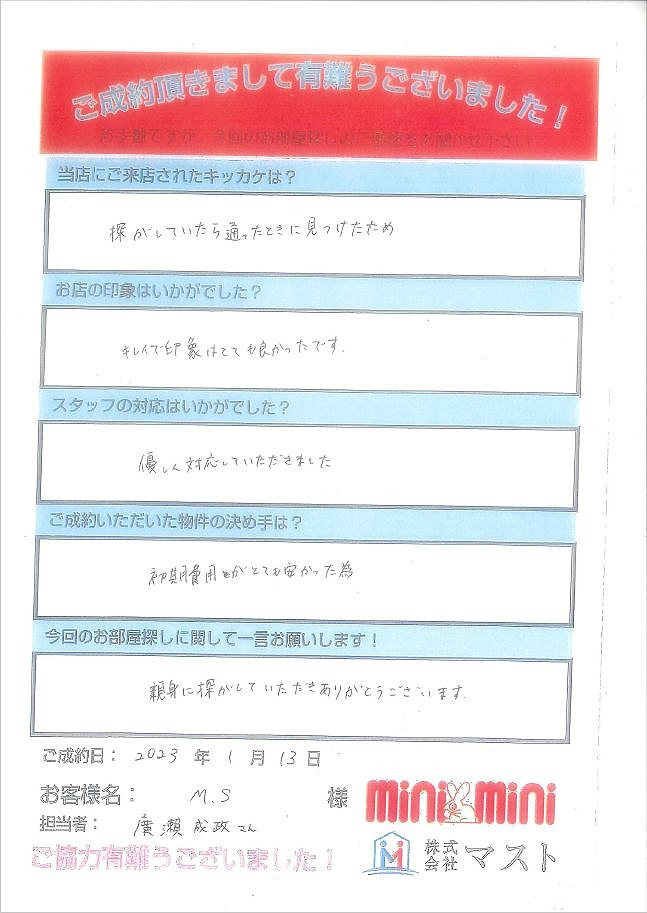 ご成約頂きまして有難うございました！
お手数ですが、今回のお部屋探しのご感想をお聞かせ下さい
当店にご来店されたキッカケは？
探がしていたら通ったときに見つけたため
お店の印象はいかがでした？
キレイで印象はとても良かったです.
スタッフの対応はいかがでした？
優しく対応していただきました
ご成約いただいた物件の決め手は？
初期費用がとても安かった為
今回のお部屋探しに関して一言お願いします！
親身に探がしていただきありがとうございます.
ご成約日： 2023 年 1 月 13 日
お客様名： M.S 様
担当者： 廣瀬成政さん
ご協力有難うございました！
mini mini
株式会社マスト